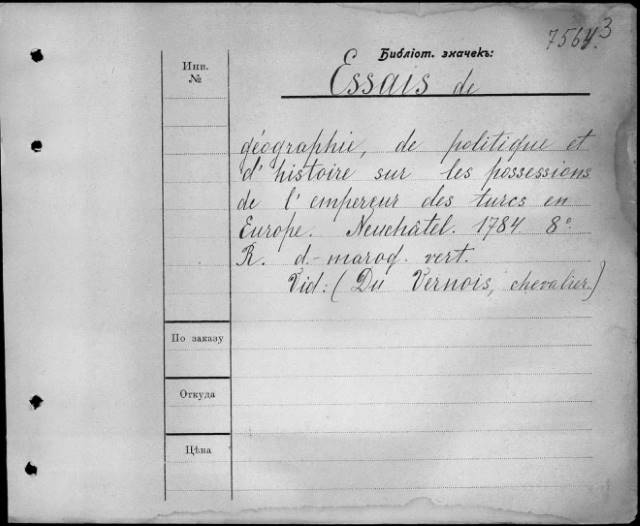 7564.3
Библіот. значекъ:
Инв.
№
Essais de
géographie, de politique et
d'histoire sur les possessions
de l'empereur des turcs en
Europe. Neuchâtel. 1784. 8º.
R. d.-maroq. vert.
Vid: (Du Vernois, chevalier)
По заказу
Откуда
Цѣна